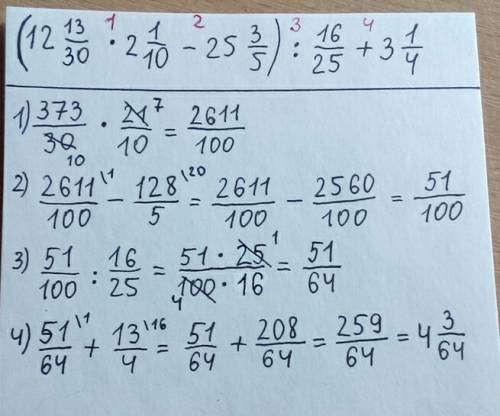 (12 13/30 · 2 1/10 − 25 3/5) : 16/25 + 3 1/4
1 2 3 4
1) 373/30 · 21/10 = 2611/100
10 7
2) 2611/100 \1 − 128/5 \20 = 2611/100 − 2560/100 = 51/100
3) 51/100 : 16/25 = 51 · 25/100 · 16 = 51/64
4 1
4) 51/64 \1 + 13/4 \16 = 51/64 + 208/64 = 259/64 = 4 3/64